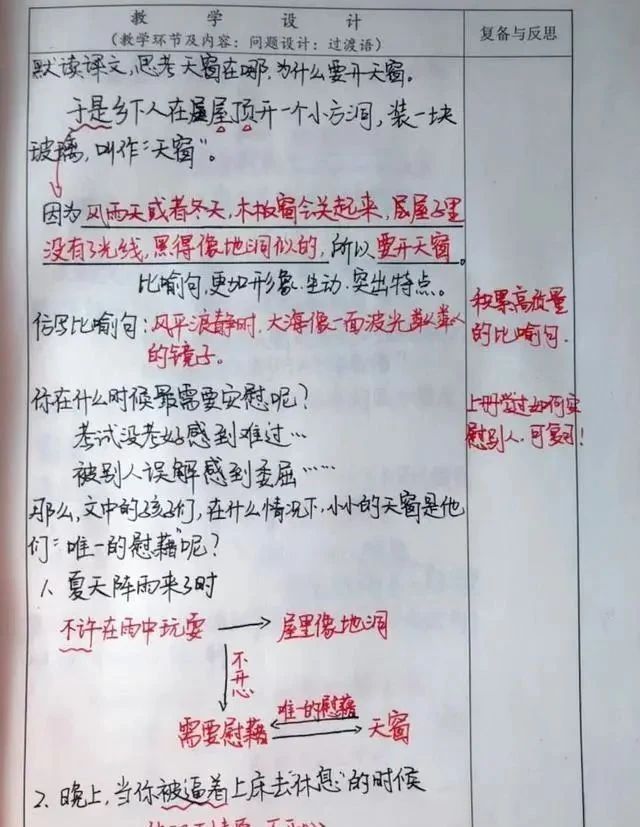 教 学 设 计
(教学环节及内容: 问题设计: 过渡语)
复备与反思
默读课文,思考天窗在哪,为什么要开天窗。
于是乡下人在屋顶开一个小方洞,装一块
玻璃,叫作:“天窗”。
因为风雨天或者冬天,木板窗会关起来,屋子里
没有了光线,黑得像地洞似的,所以要开天窗。
比喻句,更加形象、生动、突出特点。
仿写比喻句:风平浪静时,大海像一面波光粼粼
的镜子。
积累高质量
的比喻句.
你在什么时候最需要安慰呢?
考试没考好感到难过…
被别人误解感到委屈……
上册学过如何安
慰别人.可复习!
那么,文中的孩子们,在什么情况下,小小的天窗是他
们“唯一的慰藉”呢?
1、夏天阵雨来了时
不许在雨中玩耍 → 屋里像地洞
不开心
需要慰藉 唯一的慰藉 天窗
2、晚上,当你被逼着上床去“休息”的时候